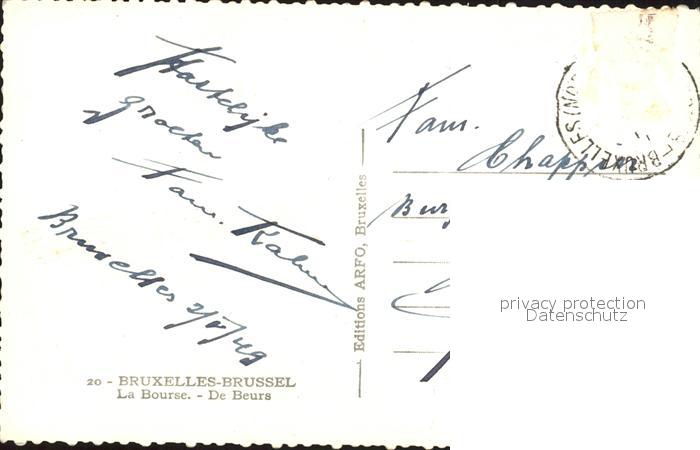 Hartelijke
groeten
Fam. Kahn
Bruxelles 2/5/49
20 - BRUXELLES-BRUSSEL
La Bourse. - De Beurs
Editions ARFO, Bruxelles
Fam.
privacy protection
Datenschutz